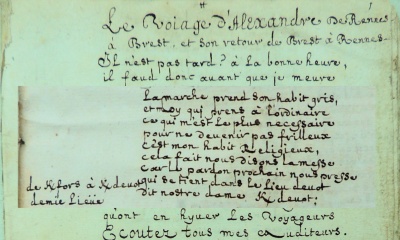 Le Voiage d'Alexandre De Rénes
à Brest, et son retour de Brest à Rennes.
Il n'est pas tard? à La bonne heure,
il faud donc avant que je meure
Lamarche prend son habit gris,
et moy qui prens à l'ordinaire
ce qui m'est le plus necessaire
pour ne devenir pas frilleux
c'est mon habit Religieux,
cela fait nous disons la messe
car le pardon prochain nous presse
de Kfors à Kdevot qui se tient dans le Lieu devot
demie Lieüe dit nostre dame Kdevot;
qu'ont en hyver Les Voyageurs
Ecoutez tous mes Auditeurs.